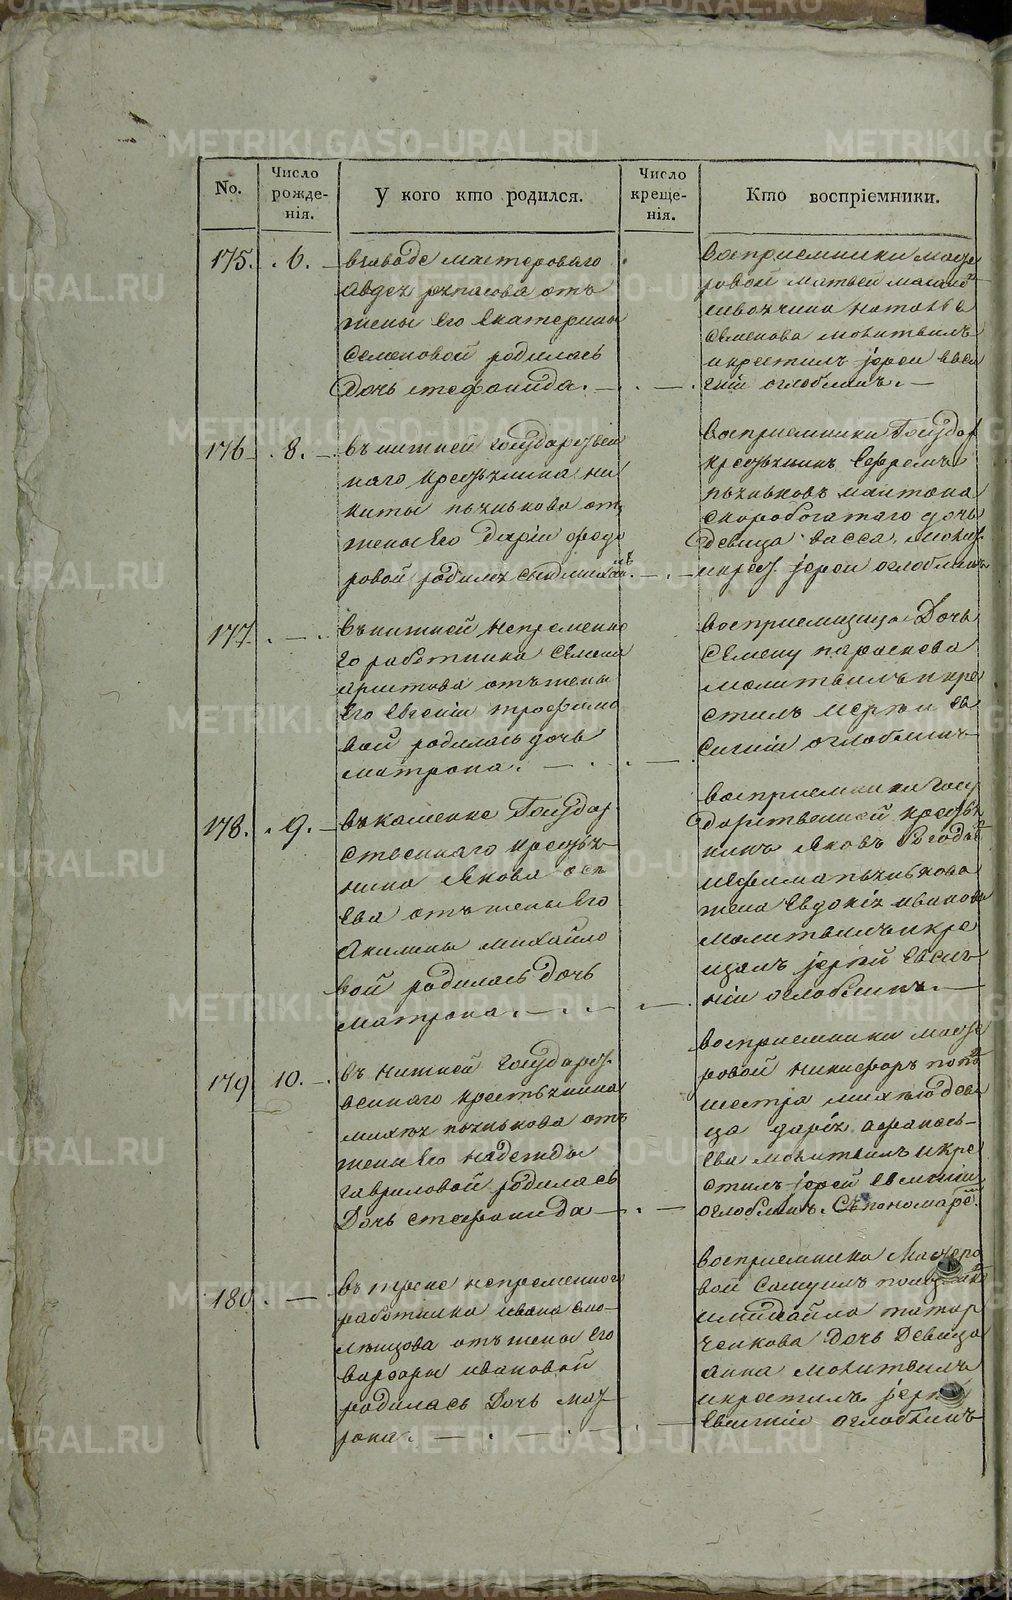 METRIKI.GASO-URAL.RU
No.
Число рожденія.
У кого кто родился.
Число крещенія.
Кто воспріемники.
175. 6.
взаводе мастероваго
отъ
жены его екатерины
семеновой родилась
Дочь стефанида.
восприемники масте
ровой матвей
семенова молитвилъ
и крестилъ іереи евси
гнїи оглоблинъ.
176 8.
въ нижней государствен
наго крестьянина ни
киты пьянькова отъ
жены его даріи федо
ровой родился сынъ
восприемники Государ
крестьянинъ Ефремъ
пьяньковъ и антона
скоробогатаго дочь
девица васса, молит.
и крест. іереи оглоблинъ
177
въ нижней непременно
го работника семена
аристова отъ жены
его евгеніи трофимо
вой родилась дочь
матрона.
восприемница Дочь
семену параскева
молитвилъ и кре
стилъ іереи ев
сигнїи оглоблинъ
178. 9.
в каменке Государ
ственнаго крестья
нина якова
ева отъ жены его
Акилины михайло
вой родилась Дочь
матрона.
восприемники госу
дарственной крестья
нинъ яковъ
и ефима пьянькова
жена Евдокія иванова
молитвилъ и кре
щалъ іерей евсиг
нїи оглоблинъ.
179 10.
въ нижней государст
веннаго крестьянина
пьянькова отъ
жены его надежды
гавриловой родилась
Дочь стефанида
восприемники масте
ровой никифоръ попо
деви
ца дарія афанась
ева молитвилъ и кре
стилъ іерей евсигнїи
оглоблинъ. Съ пономаре
180.
непременнаго
работника ивана
отъ жены его
варвары ивановой
родилась Дочь мат
рона.
восприемники Мастеро
вой Самуилъ
и михайла татар
ченкова Дочь Девица
анна молитвилъ
и крестилъ іерей
Евсигнїи оглоблинъ